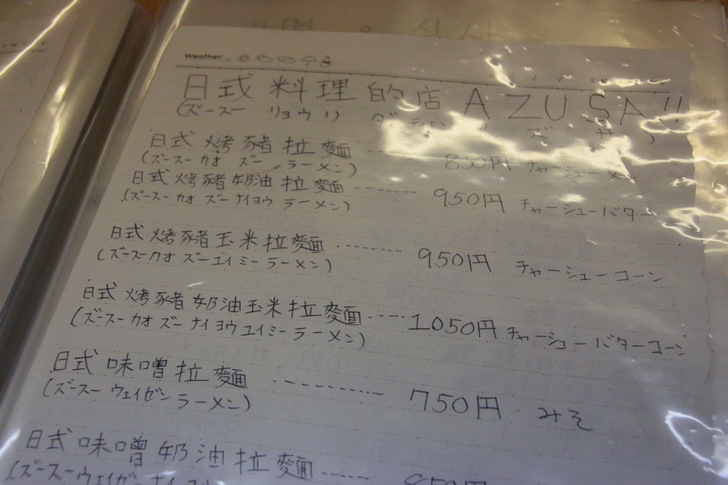 Weather
日式料理的店 AZUSA!!
(ズースー リョウリ
日式烤豬拉麵 850円 チャーシューメン
(ズースー カオ ズー ラーメン)
日式烤豬奶油拉麵 ------ 950円 チャーシューバター
(ズースー カオ ズー ナイヨウ ラーメン)
日式烤豬玉米拉麵 ------ 950円 チャーシューコーン
(ズースー カオ ズー ユイミー ラーメン)
日式烤豬奶油玉米拉麵 ---- 1050円 チャーシューバターコーン
(ズースー カオ ズー ナイ ヨウ ユイミー ラーメン)
日式味噌拉麵 -------- 750円 みそ
(ズースー ウェイゼン ラーメン)
日式味噌奶油拉麵 ------
(ズースー ウェイゼン